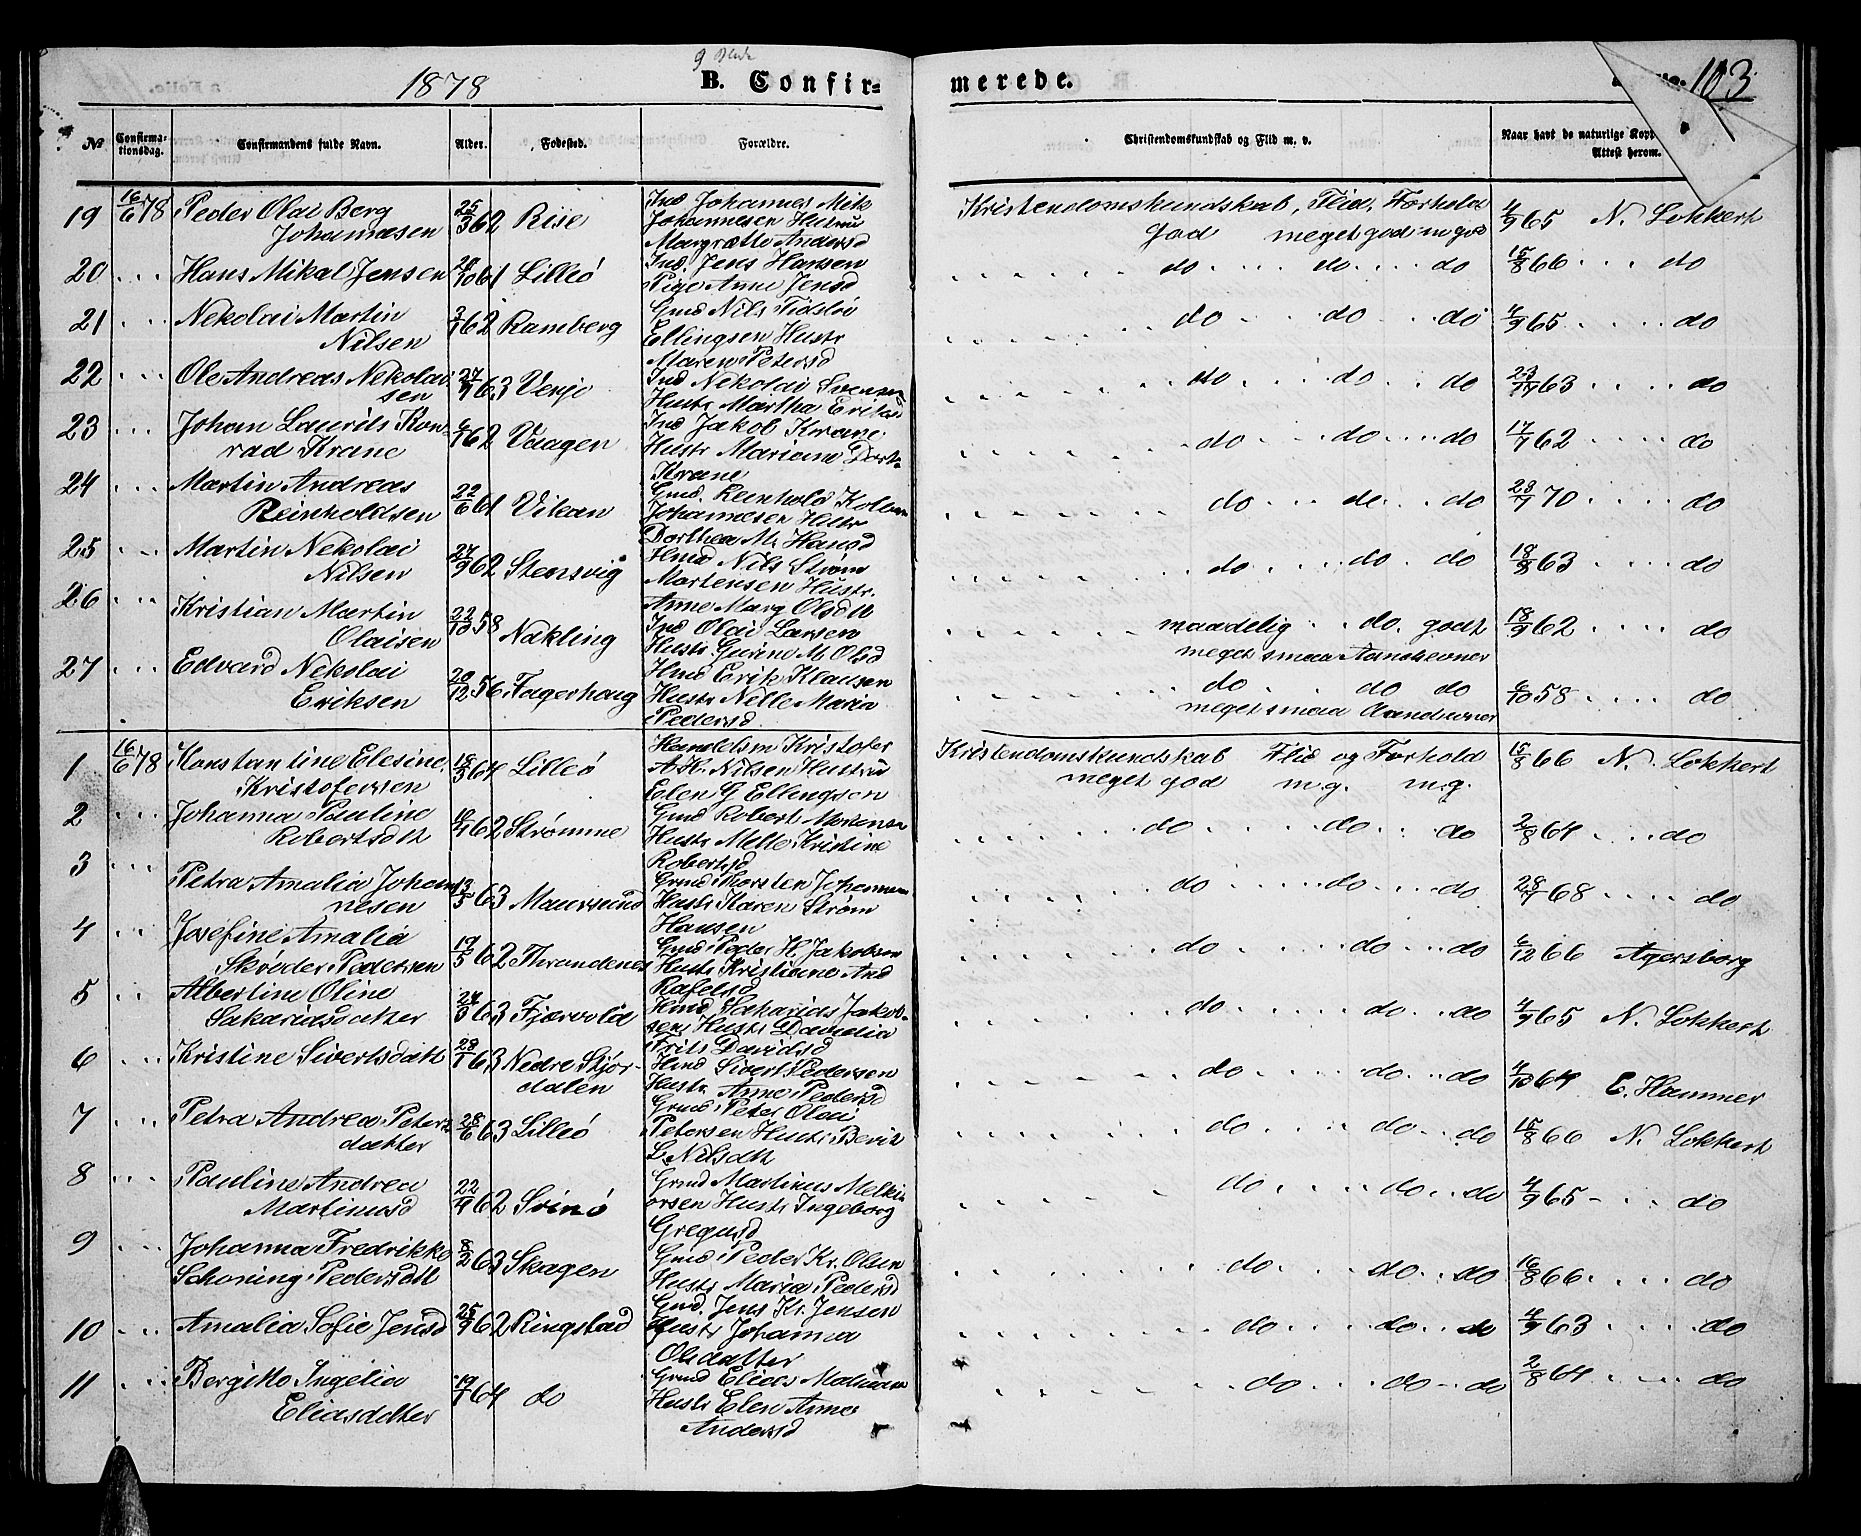 1878
B. Confir=
merede.
103
No
Confirma-
tionsdag.
Confirmandens fulde Navn.
Alder.
Fødested.
Forældre.
Christendomskundskab og Flid m. v.
Naar havt de naturlige Kopp
Attest herom.
19 16/6 78 Peder Olai Berg Johannesen 25/3 62 Risø Ind Johannes Mik Johannesen Hustru Margrætte Andersd Kristendomskundskab, Flid, Forhold god meget god m god 4/9 65 N. Lokkert
20 Hans Mikal Jensen 20/10 61 Lilleö Ind. Jens Hansen Pige Anne Jensd do do do 15/8 66 do
21 Nekolai Martin Nilsen 3/1 62 Ramberg Gmd Nils Tidslö Ellingsen Hustr Maren Petersd do do do 4/9 65 do
22 Ole Andreas Nekolaisen 27/1 63 Ind Nekolai Svensen Hustr Martha Eriksd do do do 63 do
23 Johan Laurits Konrad Krane 6/1 62 Vaagen Ind Jakob Krane Hustr Mariane Dort. Krane do do do 17/7 62 do
24 Martin Andreas Reinholdsen 22/6 61 Vikan Gmd. Reinhold Johannesen Hustr Dorthea M. Hansd do do do 70 do
25 Martin Nekolai Nilsen 27/9 62 Stensvig Hmd Nils Strøm Martensen Hustr. Anne Marg Olsdtt do do do 18/8 63 do
26 Kristian Martin Olaisen 22/10 58 Nakling Ind Olai Larsen Hustr Gurine M Olsd maadelig do godt meget smaa Aandsevner 18/9 62 do
27 Edvard Nekolai Eriksen 20/12 56 Fagerhaug Hmd Erik Klausen Hustr Nille Maria Pedersd do do do meget smaa Aandsevner 6/10 58 do
1 16/6 78 Konstantine Elesine Kristofersen 64 Lilleö Handelsm Kristofer A.H. Nilsen Hustru Elen G Ellingsen Kristendomskundskab Flid og Forhold meget god m.g. m.g. 15/8 66 N. Lokkert
2 Johanna Pauline Robertsdtt 62 Strømme Gmd Robert Hustr Mette Kristine Robertsd do do do 2/8 64 do
3 Petra Amalia Johannesen 13/5 63 Maursund Grmd Thorsten Johannesen Hustr Karen Strøm Hansen do do do 68 do
4 Josefine Amalia Skröder Pedersen 19/5 62 Thrandenes Gmd Peder H. Jakobsen Hustr Kristiane And Rafelsd do do do 6/12 66 Agersborg
5 Albertine Oline Sakariasdatter 63 Fjærvold Hmd Sakarias Jakobsen Hustr Damelia Frits Davidsd do do do 4/9 65 N. Lokkert
6 Kristine Sivertsdatt 28/1 63 Nedre Stjørdalen Hmd Sivert Pedersen Hustr. Anne Pedersd do do do 4/10 64 E. Hammer
7 Petra Andrea Petersdatter 28/6 63 Lilleö Grmd Peter Olai Petersen Hustr Berit L. Nilsdtt do do do 15/8 66 N. Lokkert
8 Pauline Andrea Martinusd 62 Svinö Grmd Martinus Melkiorsen Hustr Ingeborg Gregusd do do do 4/9 65 do
9 Johanna Fredrikke Schoning Pedersdtt 8/2 63 Skagen Gmd Peder Kr. Olsen Hustr Maria Pedersd do do do 16/8 66 do
10 Amalia Sofie Jensd 25/9 62 Ringstad Gmd. Jens Kr. Jensen Hustr Johanna Olsdatter do do do 4/9 63 do
11 Bergitte Ingelia Eliasdatter 19/1 64 do Grmd Elias Hustr Elen Anne Andersd do do do 2/8 64 do